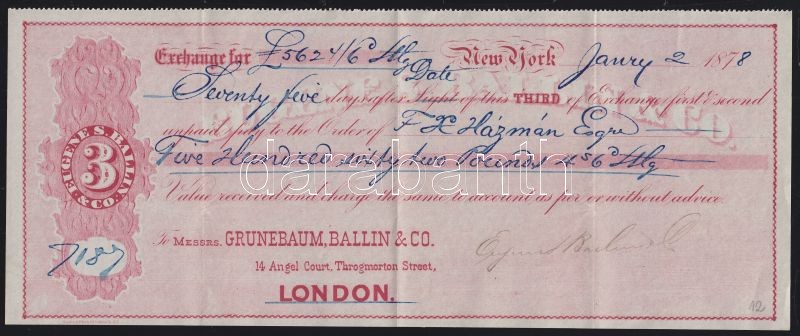 Exchange for £562 4/6d Stg New York Janry 2 1878
Date
Seventy five days after Sight of this THIRD of Exchange first & second
unpaid pay to the Order of F X Házmán Esqre
Five Hundred sixty two Pounds 4s 6d Stg
Value received and charge the same to account as per or without advice.
To MESSRS. GRUNEBAUM, BALLIN & CO.
14 Angel Court, Throgmorton Street,
LONDON.
EUGENE S. BALLIN & CO.
3
7187
12
darabanth